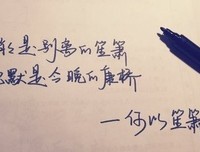 悄是别离的笙箫
默是今晚的康桥
—何以笙箫